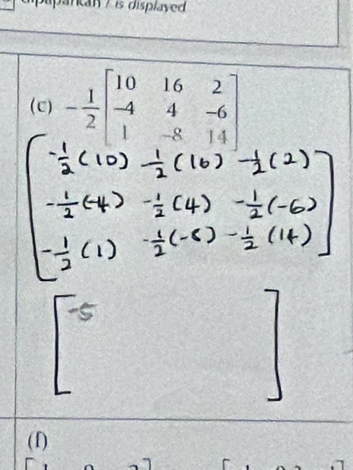 is displayed
(c) -1/2 [10 16 2
-4 4 -6
1 -8 14]
[-1/2(10) -1/2(16) -1/2(2)
-1/2(-4) -1/2(4) -1/2(-6)
-1/2(1) -1/2(-8) -1/2(14)]
[-5 ]
(f)